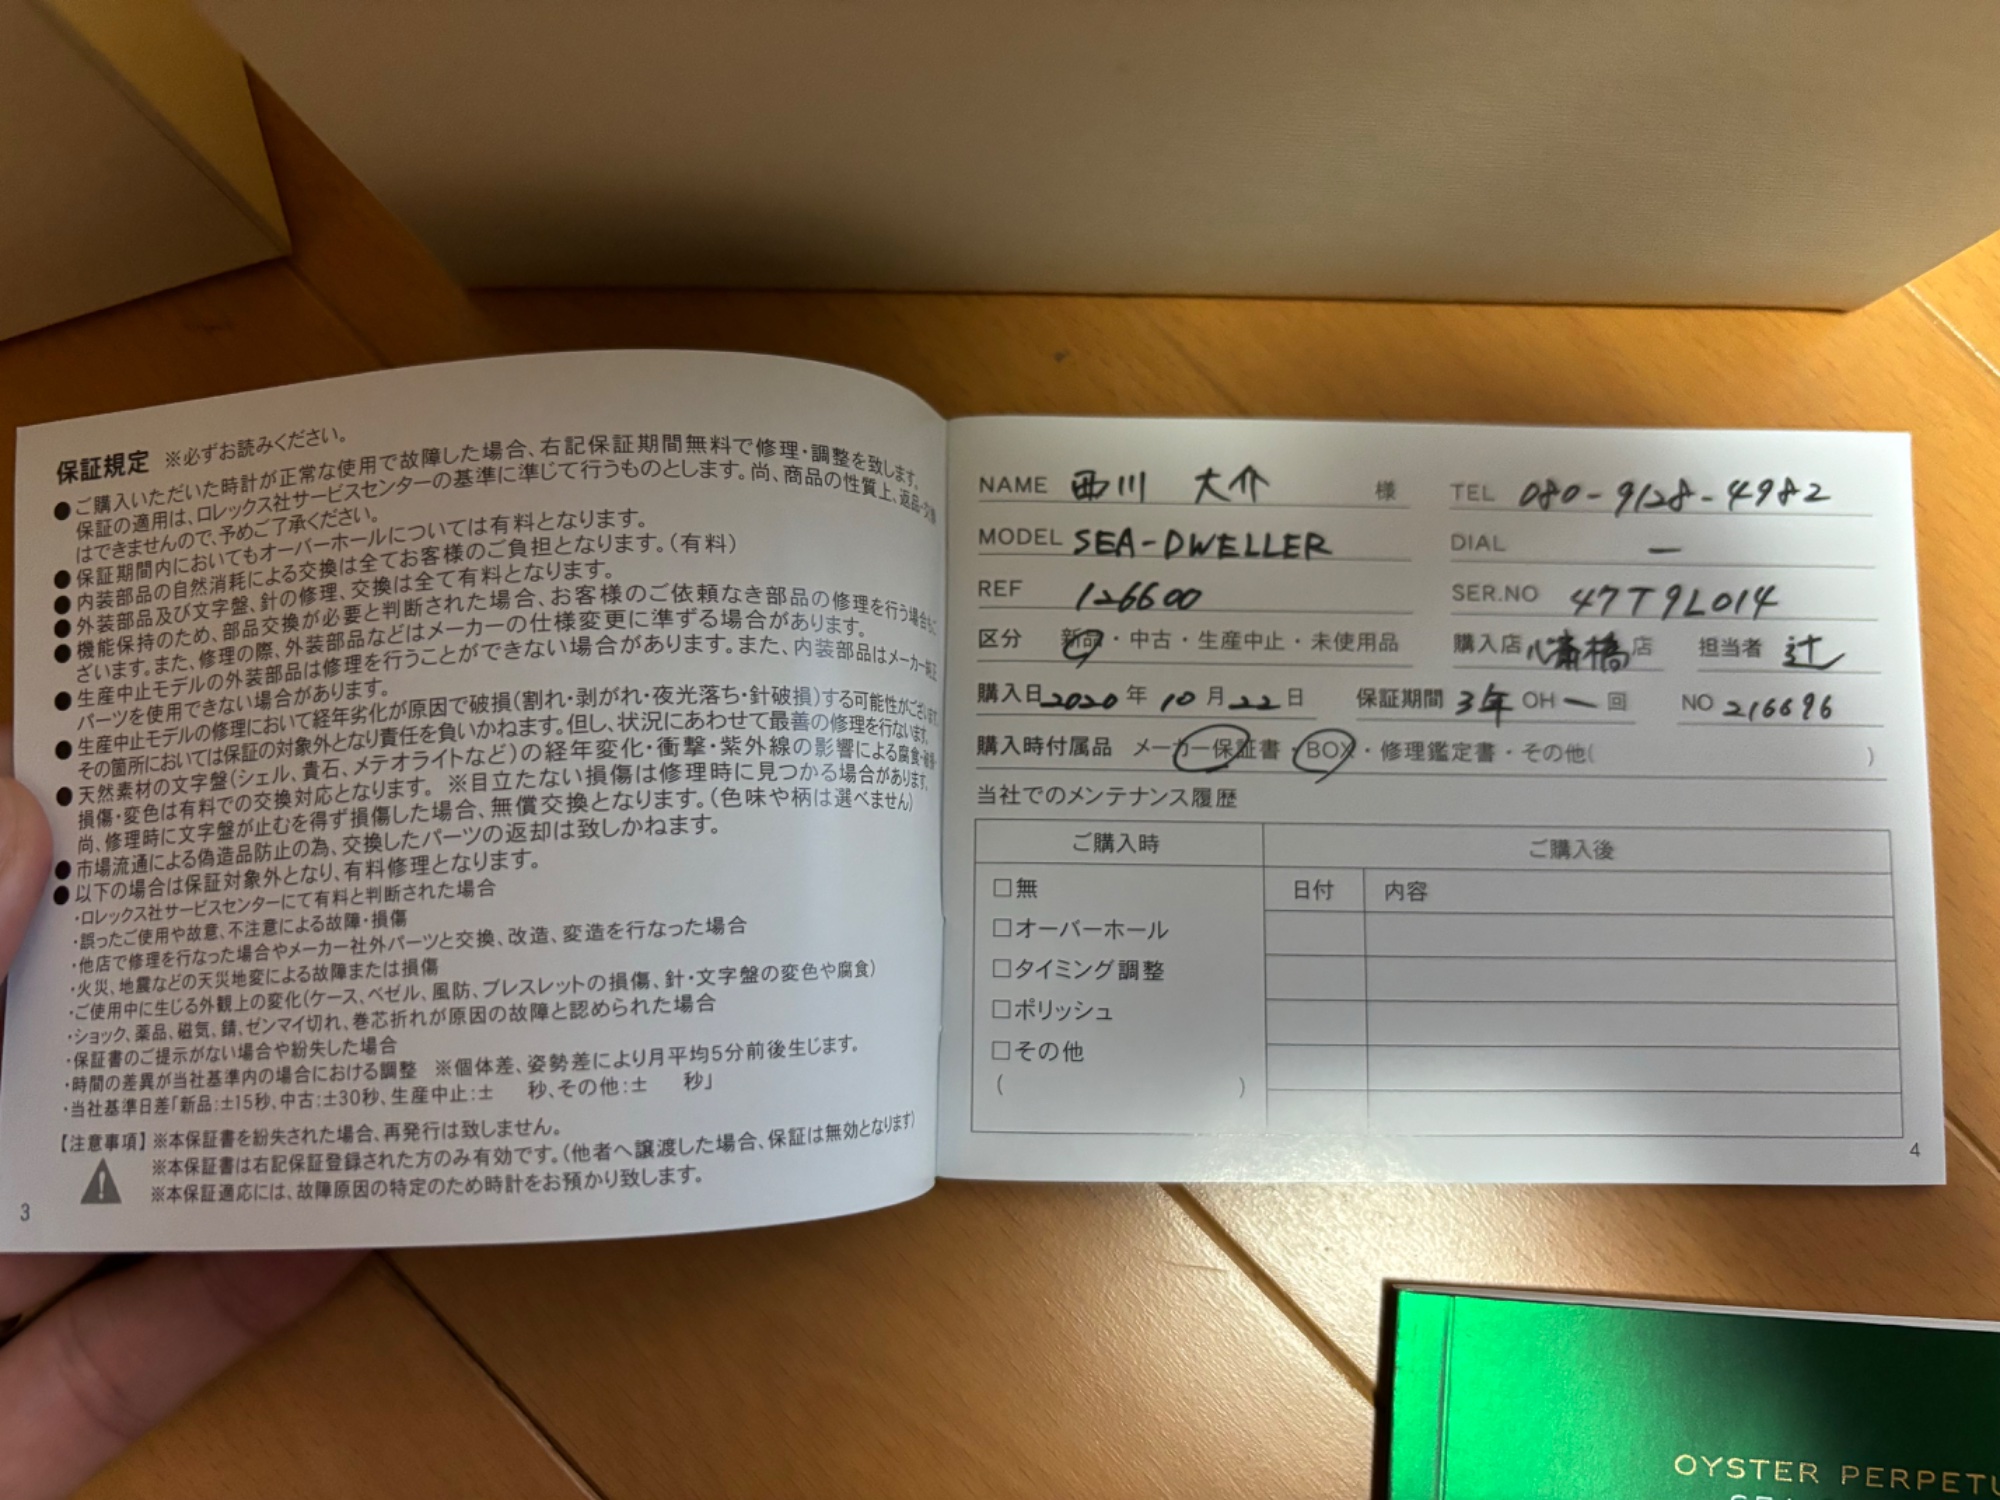 保証規定 ※必ずお読みください。
●ご購入いただいた時計が正常な使用で故障した場合、右記保証期間無料で修理・調整を致します。
保証の適用は、ロレックス社サービスセンターの基準に準じて行うものとします。尚、商品の性質上、返品・交換
はできませんので、予めご了承ください。
●保証期間内においてもオーバーホールについては有料となります。
●内装部品の自然消耗による交換は全てお客様のご負担となります。(有料)
●外装部品及び文字盤、針の修理、交換は全て有料となります。
●機能保持のため、部品交換が必要と判断された場合、お客様のご依頼なき部品の修理を行う場合もご
ざいます。また、修理の際、外装部品などはメーカーの仕様変更に準ずる場合があります。
●生産中止モデルの外装部品は修理を行うことができない場合があります。また、内装部品はメーカー純正
パーツを使用できない場合があります。
●生産中止モデルの修理において経年劣化が原因で破損(割れ・剥がれ・夜光落ち・針破損)する可能性がございます。
その箇所においては保証の対象外となり責任を負いかねます。但し、状況にあわせて最善の修理を行ないます。
●天然素材の文字盤(シェル、貴石、メテオライトなど)の経年変化・衝撃・紫外線の影響による腐食・破損・
損傷・変色は有料での交換対応となります。 ※目立たない損傷は修理時に見つかる場合があります。
尚、修理時に文字盤が止むを得ず損傷した場合、無償交換となります。(色味や柄は選べません)
●市場流通による偽造品防止の為、交換したパーツの返却は致しかねます。
●以下の場合は保証対象外となり、有料修理となります。
・ロレックス社サービスセンターにて有料と判断された場合
・誤ったご使用や故意、不注意による故障・損傷
・他店で修理を行なった場合やメーカー社外パーツと交換、改造、変造を行なった場合
・火災、地震などの天災地変による故障または損傷
・ご使用中に生じる外観上の変化(ケース、ベゼル、風防、ブレスレットの損傷、針・文字盤の変色や腐食)
・ショック、薬品、磁気、錆、ゼンマイ切れ、巻芯折れが原因の故障と認められた場合
・保証書のご提示がない場合や紛失した場合
・時間の差異が当社基準内の場合における調整 ※個体差、姿勢差により月平均5分前後生じます。
・当社基準日差「新品:±15秒、中古:±30秒、生産中止:± 秒、その他:± 秒」
【注意事項】※本保証書を紛失された場合、再発行は致しません。
※本保証書は右記保証登録された方のみ有効です。(他者へ譲渡した場合、保証は無効となります)
※本保証適応には、故障原因の特定のため時計をお預かり致します。
3
NAME 西川 大介 様 TEL 080-9128-4982
MODEL SEA-DWELLER DIAL ー
REF 126600 SER.NO 47T9L014
区分 新品・中古・生産中止・未使用品 購入店 心斎橋店 担当者 辻
購入日 2020 年 10 月 22 日 保証期間 3年 OH ー 回 NO 216696
購入時付属品 メーカー保証書・BOX・修理鑑定書・その他( )
当社でのメンテナンス履歴
ご購入時 ご購入後
□無 日付 内容
□オーバーホール
□タイミング調整
□ポリッシュ
□その他
( )
4
OYSTER PERPETU